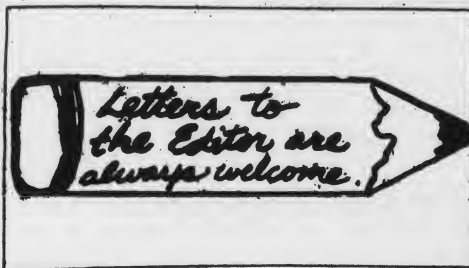 Letters to
the Editor are
always welcome.